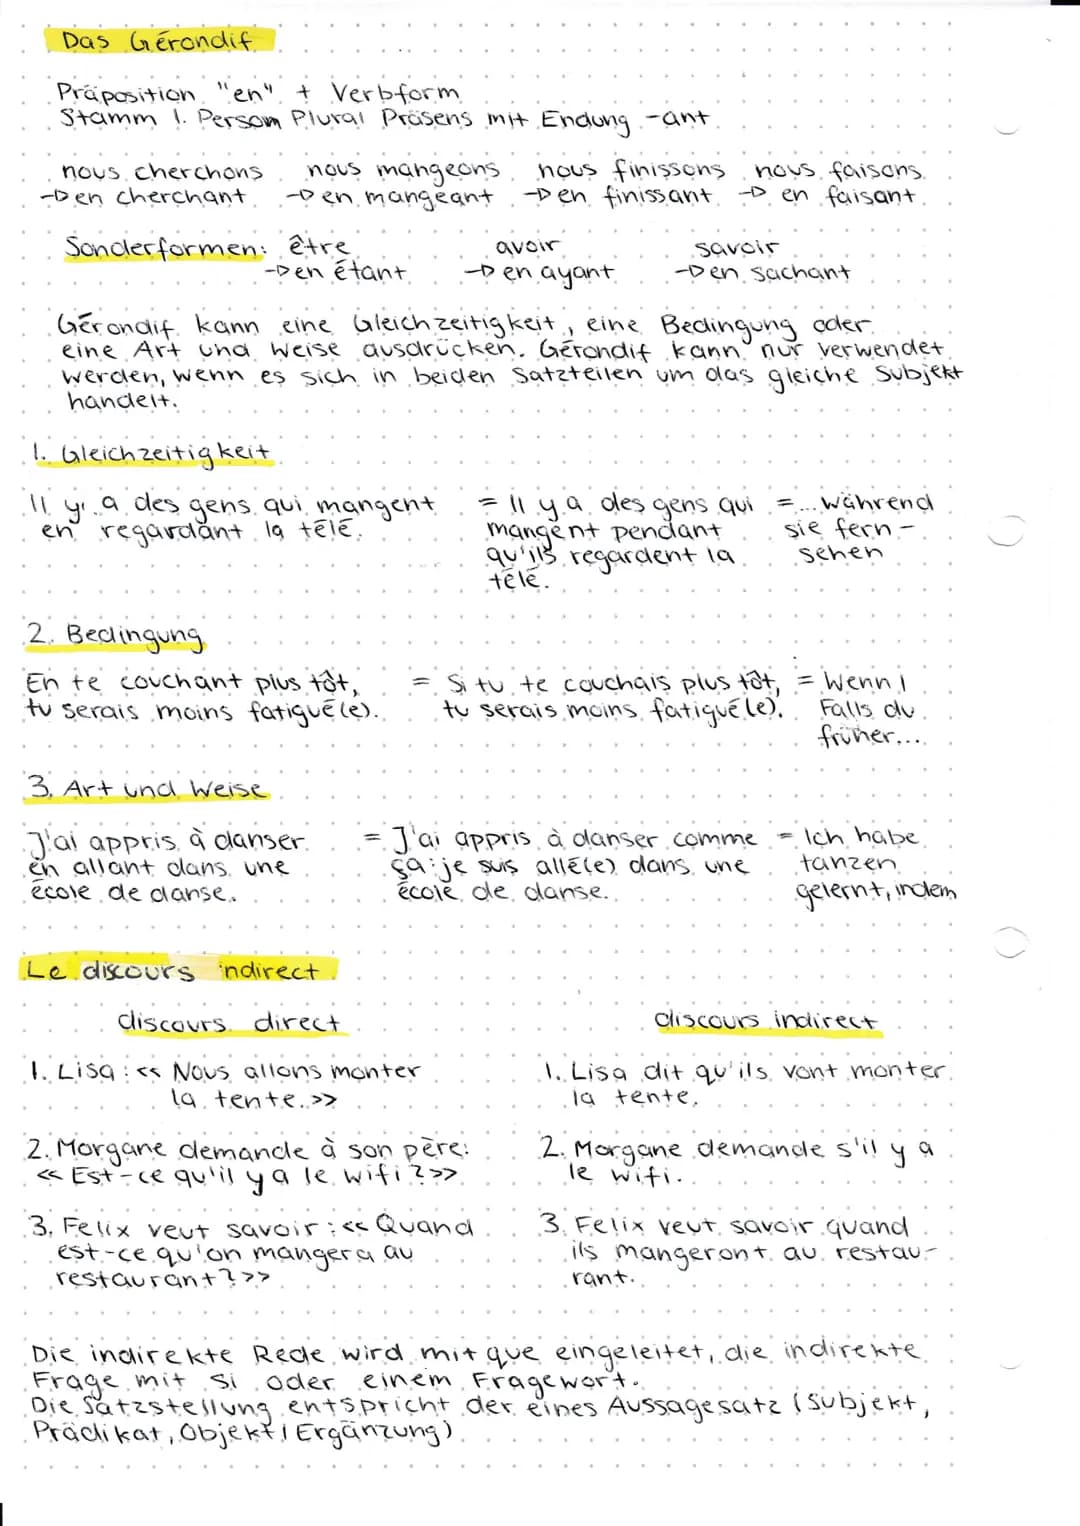 Das Gérondif
Präposition "en" + Verbform
Stamm 1. Person Plural Präsens mit Endung -ant
nous cherchons nous mangeons nous finissons nous faisons
→ en cherchant → en mangeant → en finissant → en faisant
Sonderformen: être avoir savoir
→ en étant → en ayant → en sachant
Gérondif kann eine Gleichzeitigkeit, eine Bedingung oder
eine Art und Weise ausdrücken. Gérondif kann nur verwendet
werden, wenn es sich in beiden Satzteilen um das gleiche Subjekt
handelt.
1. Gleichzeitigkeit
Il y a des gens qui mangent = Il y a des gens qui = ... während
en regardant la télé. mangent pendant sie fern-
qu'ils regardent la sehen
télé.
2. Bedingung
En te couchant plus tôt, = Si tu te couchais plus tôt, = Wenn /
tu serais moins fatigué(e). tu serais moins fatigué(e). Falls du
früher...
3. Art und Weise
J'ai appris à danser = J'ai appris à danser comme = Ich habe
en allant dans une ça: je suis allé(e) dans une tanzen
école de danse. école de danse. gelernt, indem
Le discours indirect
discours direct discours indirect
1. Lisa: << Nous allons monter 1. Lisa dit qu'ils vont monter
la tente. >> la tente.
2. Morgane demande à son père: 2. Morgane demande s'il y a
<< Est-ce qu'il y a le wifi? >> le wifi.
3. Felix veut savoir: << Quand 3. Felix veut savoir quand
est-ce qu'on mangera au ils mangeront au restau-
restaurant? >> rant.
Die indirekte Rede wird mit que eingeleitet, die indirekte
Frage mit si oder einem Fragewort.
Die Satzstellung entspricht der eines Aussagesatz (Subjekt,
Prädikat, Objekt / Ergänzung)